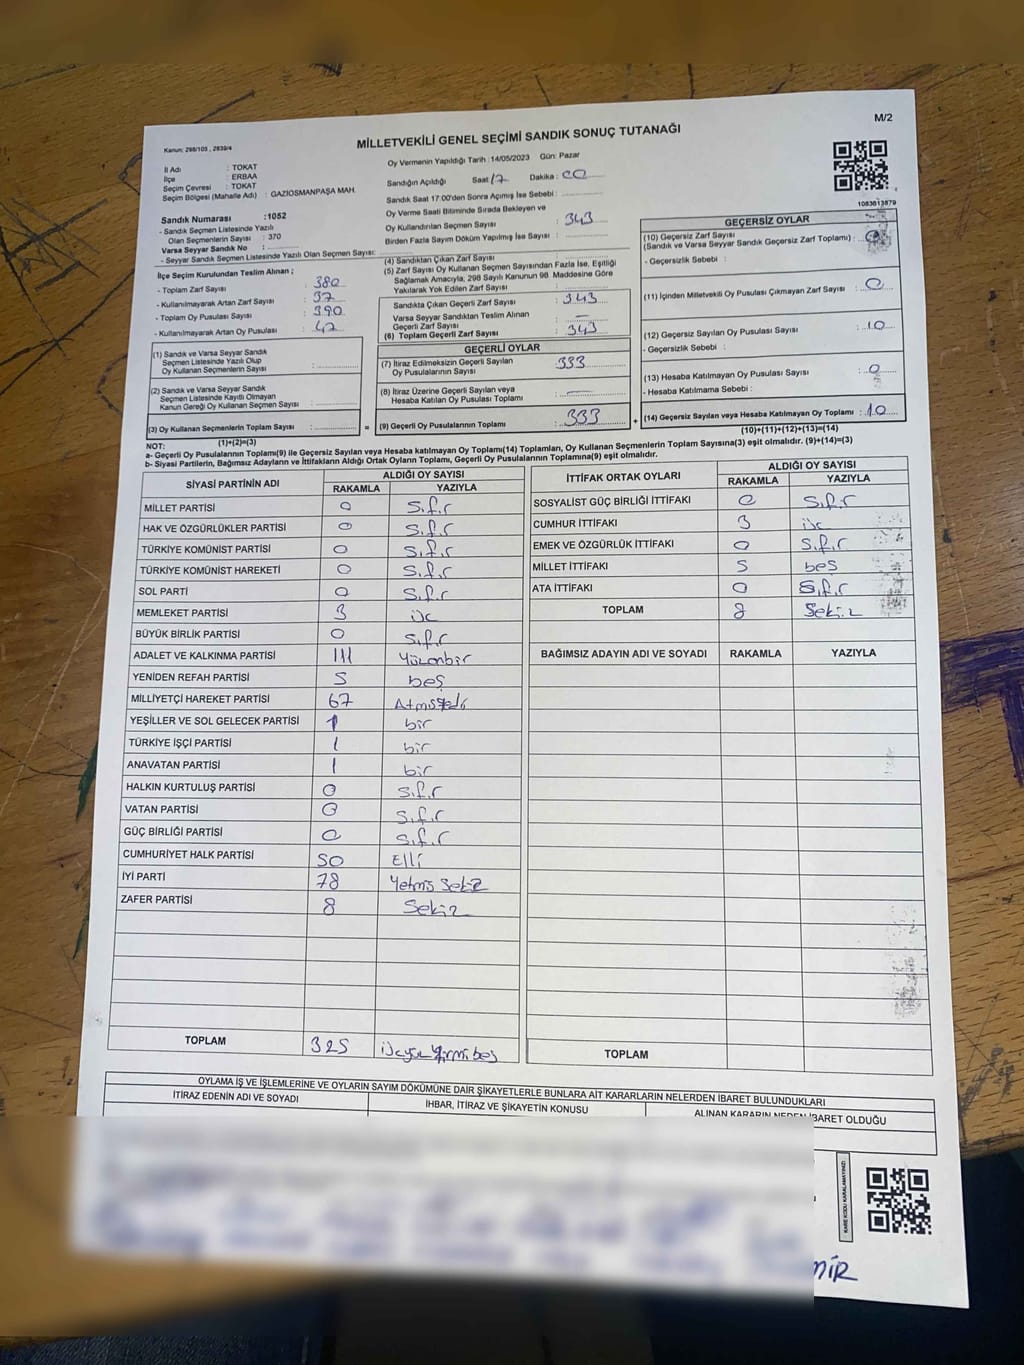 M/2
MİLLETVEKİLİ GENEL SEÇİMİ SANDIK SONUÇ TUTANAĞI
Kanun: 298/105 , 2839/4
İl Adı : TOKAT
İlçe : ERBAA
Seçim Çevresi : TOKAT
Seçim Bölgesi (Mahalle Adı) : GAZİOSMANPAŞA MAH.
Sandık Numarası :1052
- Sandık Seçmen Listesinde Yazılı
Olan Seçmenlerin Sayısı : 370
Varsa Seyyar Sandık No :
- Seyyar Sandık Seçmen Listesinde Yazılı Olan Seçmen Sayısı:
İlçe Seçim Kurulundan Teslim Alınan ;
- Toplam Zarf Sayısı : 380
- Kullanılmayarak Artan Zarf Sayısı : 37
- Toplam Oy Pusulası Sayısı : 390
- Kullanılmayarak Artan Oy Pusulası : 47
(1) Sandık ve Varsa Seyyar Sandık
Seçmen Listesinde Yazılı Olup
Oy Kullanan Seçmenlerin Sayısı :
(2) Sandık ve Varsa Seyyar Sandık
Seçmen Listesinde Kayıtlı Olmayan
Kanun Gereği Oy Kullanan Seçmen Sayısı :
(3) Oy Kullanan Seçmenlerin Toplam Sayısı :
(1)+(2)=(3)
Oy Vermenin Yapıldığı Tarih :14/05/2023 Gün: Pazar
Sandığın Açıldığı Saat : 17 Dakika : 00
Sandık Saat 17:00'den Sonra Açımış İse Sebebi :
Oy Verme Saati Bitiminde Sırada Bekleyen ve
Oy Kullandırılan Seçmen Sayısı : 343
Birden Fazla Sayım Döküm Yapılmış İse Sayısı :
(4) Sandıktan Çıkan Zarf Sayısı :
(5) Zarf Sayısı Oy Kullanan Seçmen Sayısından Fazla İse, Eşitliği
Sağlamak Amacıyla; 298 Sayılı Kanunun 98. Maddesine Göre
Yakılarak Yok Edilen Zarf Sayısı :
Sandıkta Çıkan Geçerli Zarf Sayısı : 343
Varsa Seyyar Sandıktan Teslim Alınan
Geçerli Zarf Sayısı : —
(6) Toplam Geçerli Zarf Sayısı : 343
GEÇERLİ OYLAR
(7) İtiraz Edilmeksizin Geçerli Sayılan
Oy Pusulalarının Sayısı : 333
(8) İtiraz Üzerine Geçerli Sayılan veya
Hesaba Katılan Oy Pusulası Toplamı : —
= (9) Geçerli Oy Pusulalarının Toplamı : 333
1083613879
GEÇERSİZ OYLAR
(10) Geçersiz Zarf Sayısı
(Sandık ve Varsa Seyyar Sandık Geçersiz Zarf Toplamı) :
- Geçersizlik Sebebi :
(11) İçinden Milletvekili Oy Pusulası Çıkmayan Zarf Sayısı : 0
(12) Geçersiz Sayılan Oy Pusulası Sayısı : 10
- Geçersizlik Sebebi :
(13) Hesaba Katılmayan Oy Pusulası Sayısı : 0
- Hesaba Katılmama Sebebi :
+ (14) Geçersiz Sayılan veya Hesaba Katılmayan Oy Toplamı : 10
(10)+(11)+(12)+(13)=(14)
NOT:
a- Geçerli Oy Pusulalarının Toplamı(9) ile Geçersiz Sayılan veya Hesaba katılmayan Oy Toplamı(14) Toplamları, Oy Kullanan Seçmenlerin Toplam Sayısına(3) eşit olmalıdır. (9)+(14)=(3)
b- Siyasi Partilerin, Bağımsız Adayların ve İttifakların Aldığı Ortak Oyların Toplamı, Geçerli Oy Pusulalarının Toplamına(9) eşit olmalıdır.
SİYASİ PARTİNİN ADI ALDIĞI OY SAYISI
RAKAMLA YAZIYLA
MİLLET PARTİSİ 0 Sıfır
HAK VE ÖZGÜRLÜKLER PARTİSİ 0 Sıfır
TÜRKİYE KOMÜNİST PARTİSİ 0 Sıfır
TÜRKİYE KOMÜNİST HAREKETİ 0 Sıfır
SOL PARTİ 0 Sıfır
MEMLEKET PARTİSİ 3 üç
BÜYÜK BİRLİK PARTİSİ 0 Sıfır
ADALET VE KALKINMA PARTİSİ 111 Yüzonbir
YENİDEN REFAH PARTİSİ 5 beş
MİLLİYETÇİ HAREKET PARTİSİ 67 Atmışyedi
YEŞİLLER VE SOL GELECEK PARTİSİ 1 bir
TÜRKİYE İŞÇİ PARTİSİ 1 bir
ANAVATAN PARTİSİ 1 bir
HALKIN KURTULUŞ PARTİSİ 0 Sıfır
VATAN PARTİSİ 0 Sıfır
GÜÇ BİRLİĞİ PARTİSİ 0 Sıfır
CUMHURİYET HALK PARTİSİ 50 Elli
İYİ PARTİ 78 Yetmiş Sekiz
ZAFER PARTİSİ 8 Sekiz
TOPLAM 325 üçyüz Yirmibeş
İTTİFAK ORTAK OYLARI ALDIĞI OY SAYISI
RAKAMLA YAZIYLA
SOSYALİST GÜÇ BİRLİĞİ İTTİFAKI 0 Sıfır
CUMHUR İTTİFAKI 3 üç
EMEK VE ÖZGÜRLÜK İTTİFAKI 0 Sıfır
MİLLET İTTİFAKI 5 beş
ATA İTTİFAKI 0 Sıfır
TOPLAM 8 Sekiz
BAĞIMSIZ ADAYIN ADI VE SOYADI RAKAMLA YAZIYLA
TOPLAM
OYLAMA İŞ VE İŞLEMLERİNE VE OYLARIN SAYIM DÖKÜMÜNE DAİR ŞİKAYETLERLE BUNLARA AİT KARARLARIN NELERDEN İBARET BULUNDUKLARI
İTİRAZ EDENİN ADI VE SOYADI İHBAR, İTİRAZ VE ŞİKAYETİN KONUSU ALINAN KARARIN NEDEN İBARET OLDUĞU
KARE KODU KARALAMAYINIZ!
MİR